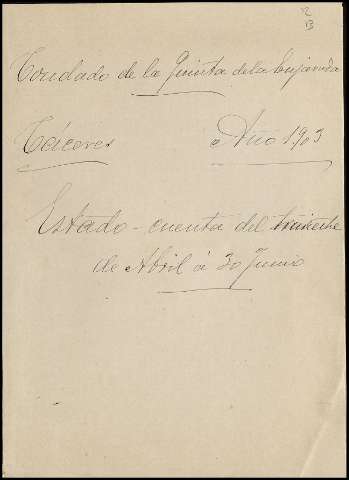 12
13
Condado de la Quinta de la Enjarada
Cáceres Año 1903
Estado-cuenta del trimestre
de Abril á 30 Junio